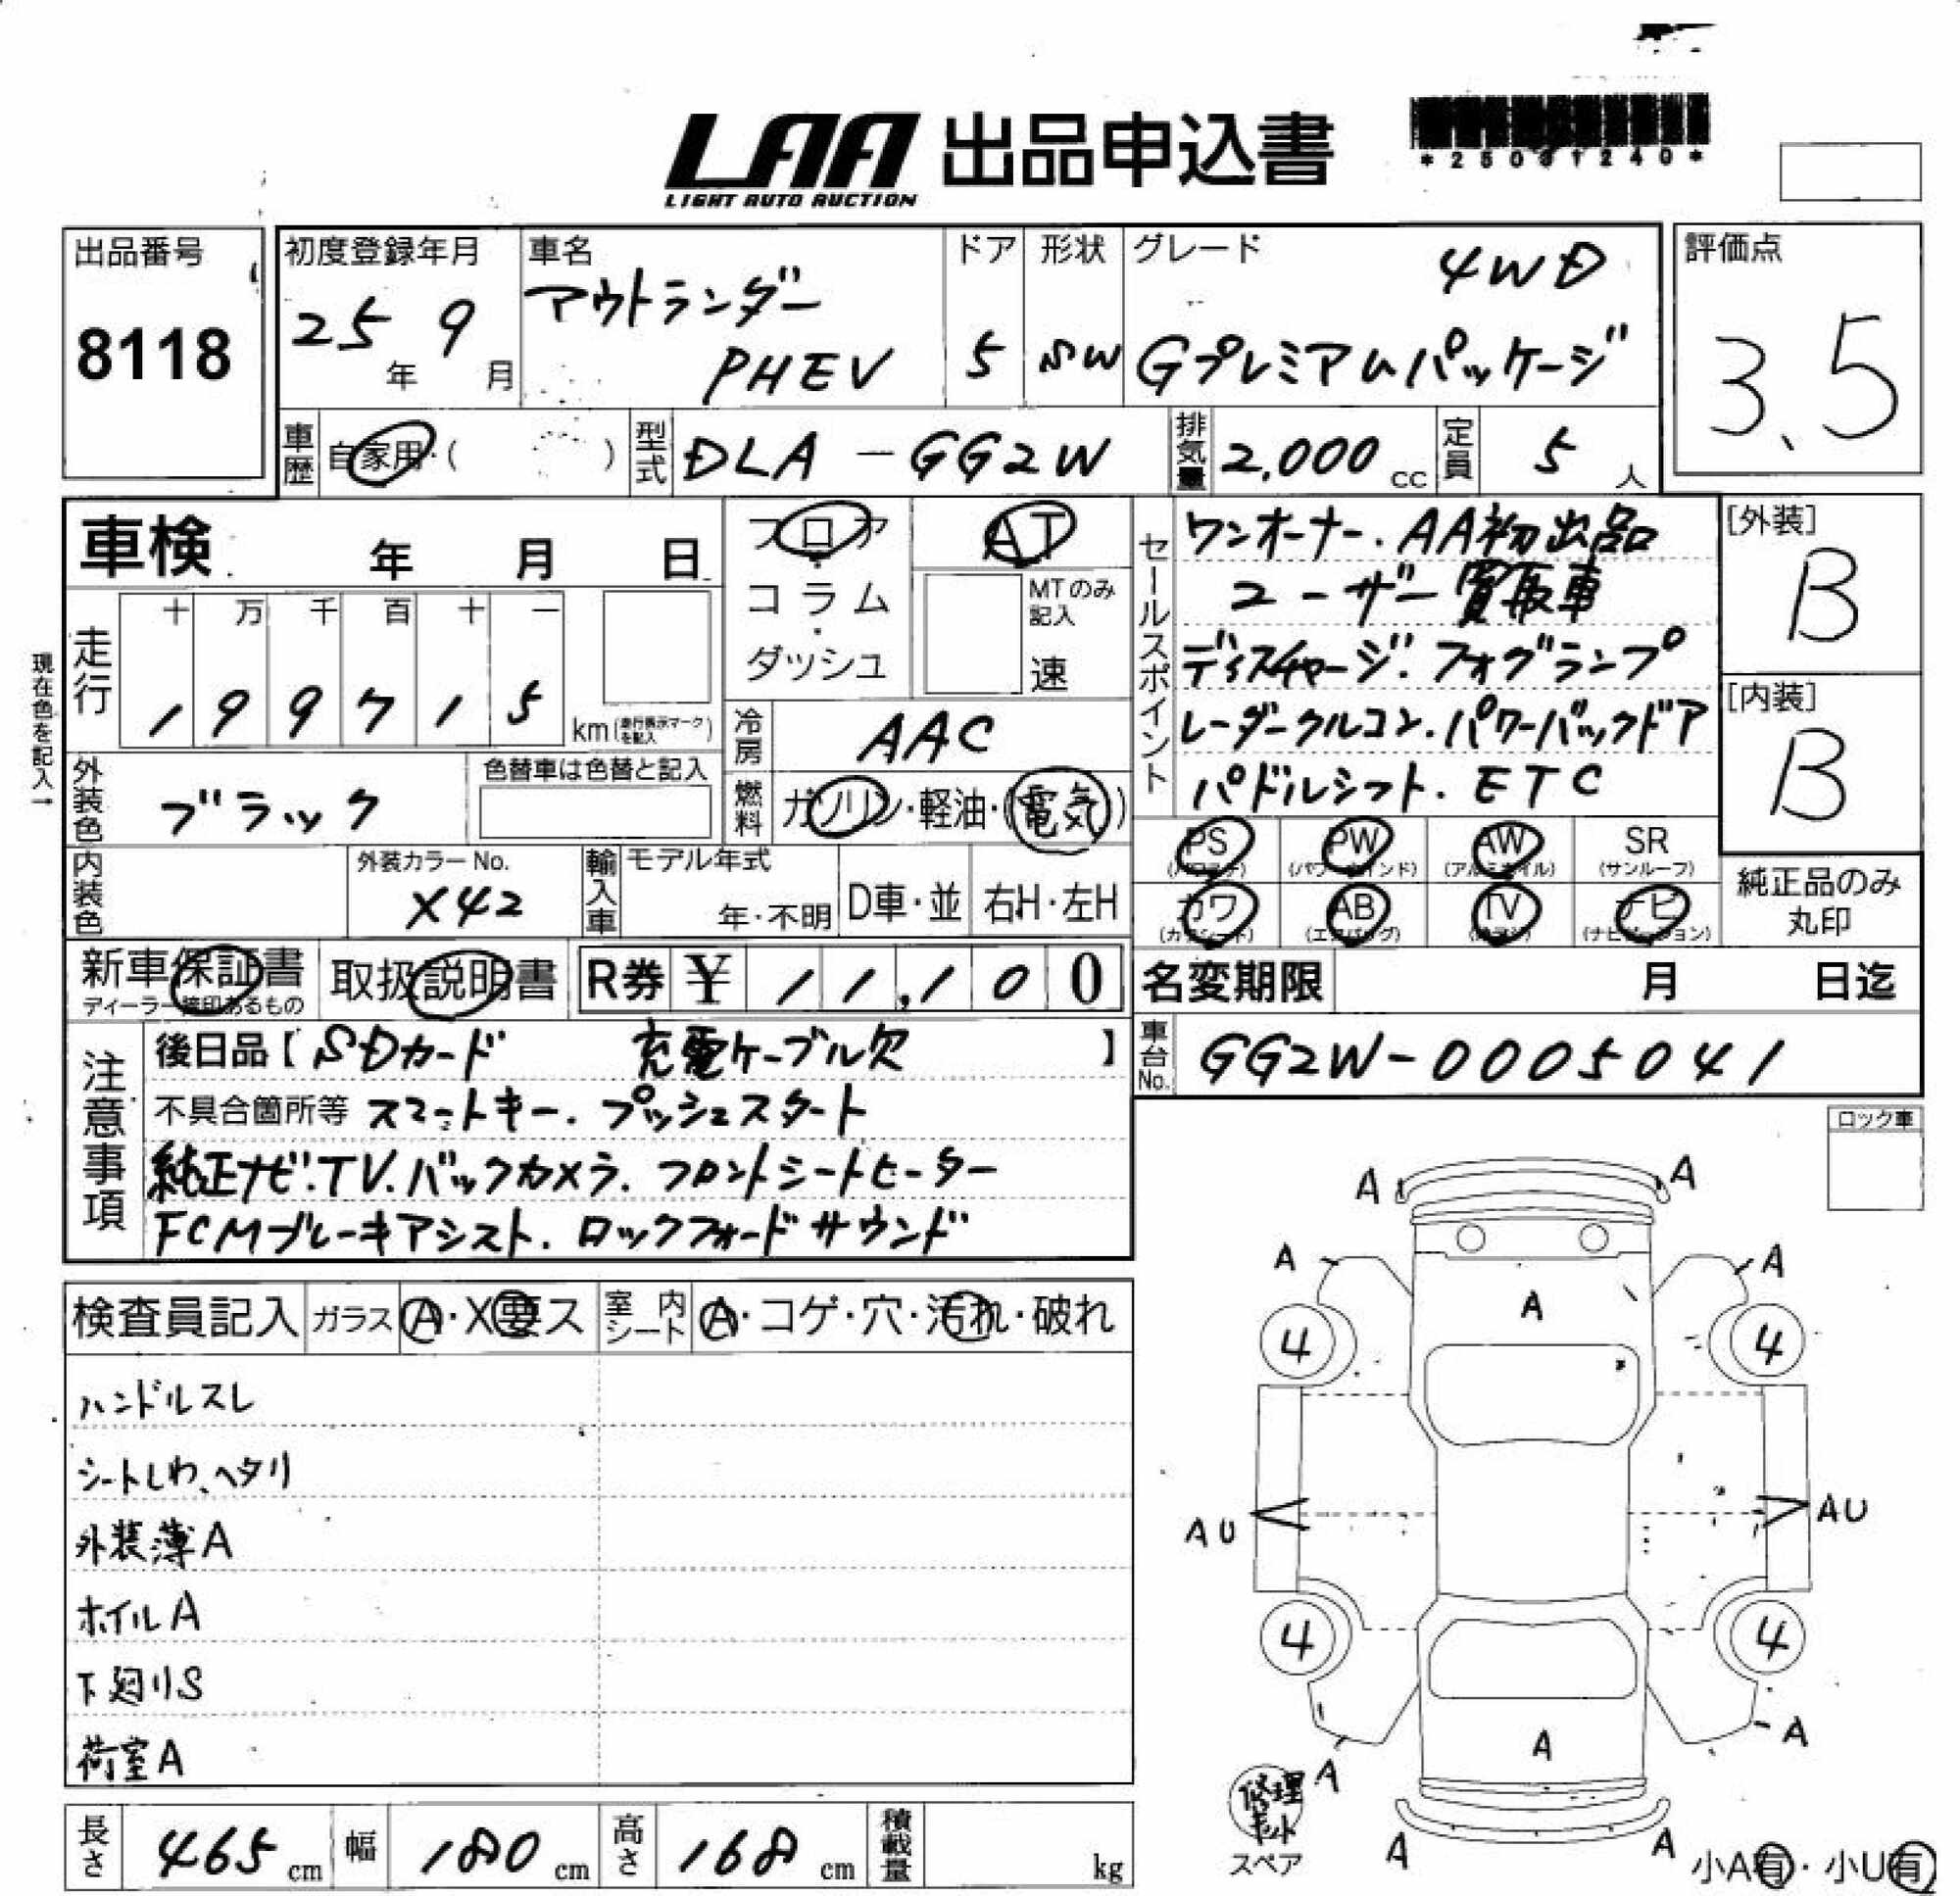 LAA 出品申込書
LIGHT AUTO AUCTION
*25031240*
出品番号
8118
初度登録年月
25年 9月
車名
アウトランダー
PHEV
ドア
5
形状
SW
グレード
4WD
Gプレミアムパッケージ
評価点
3.5
車歴 自家用・( )
型式 DLA-GG2W
排気量 2,000 cc
定員 5 人
車検 年 月 日
現在色を記入→
走行
十 万 千 百 十 一
1 9 9 7 1 5 km (走行表示マークを記入)
フロア・コラム・ダッシュ
AT
MTのみ記入
速
冷房 AAC
燃料 ガソリン・軽油・(電気)
外装色 ブラック
色替車は色替と記入
内装色
外装カラーNo.
X42
輸入車
モデル年式
年・不明
D車・並
右H・左H
セールスポイント
ワンオーナー.AA初出品
ユーザー買取車
ディスチャージ.フォグランプ
レーダークルコン.パワーバックドア
パドルシフト.ETC
[外装]
B
[内装]
B
PS PW AW SR
(パワステ) (パワーウインド) (アルミホイル) (サンルーフ)
カワ AB TV ナビ
(カワシート) (エアバッグ) (ナビゲーション)
純正品のみ
丸印
新車保証書
ディーラー捺印あるもの
取扱説明書
R券 ¥ 11,100
名変期限 月 日迄
注意事項
後日品【SDカード 充電ケーブル欠】
不具合箇所等 スマートキー.プッシュスタート
純正ナビ.TV.バックカメラ.フロントシートヒーター
FCMブレーキアシスト.ロックフォードサウンド
車台No. GG2W-0005041
ロック車
検査員記入 ガラス A・X要ス 室内シート A・コゲ・穴・汚れ・破れ
ハンドルスレ
シートしわ、ヘタリ
外装薄A
ホイルA
下廻りS
荷室A
A A
A A
A
4 4
AU AU
4 4
A
A
A
修理キット
スペア
A A
小A有・小U有
長さ 465 cm 幅 180 cm 高さ 168 cm 積載量 kg